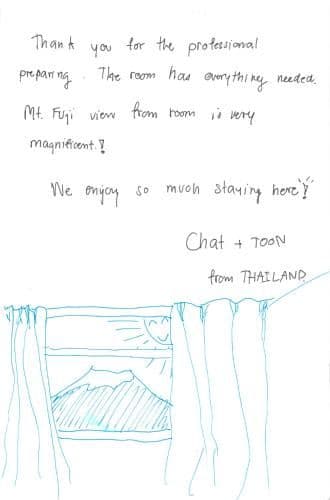 Thank you for the professional
preparing. The room has everything needed.
Mt. Fuji view from room is very
magnificent.!
We enjoy so much staying here!
Chat + TOON
from THAILAND